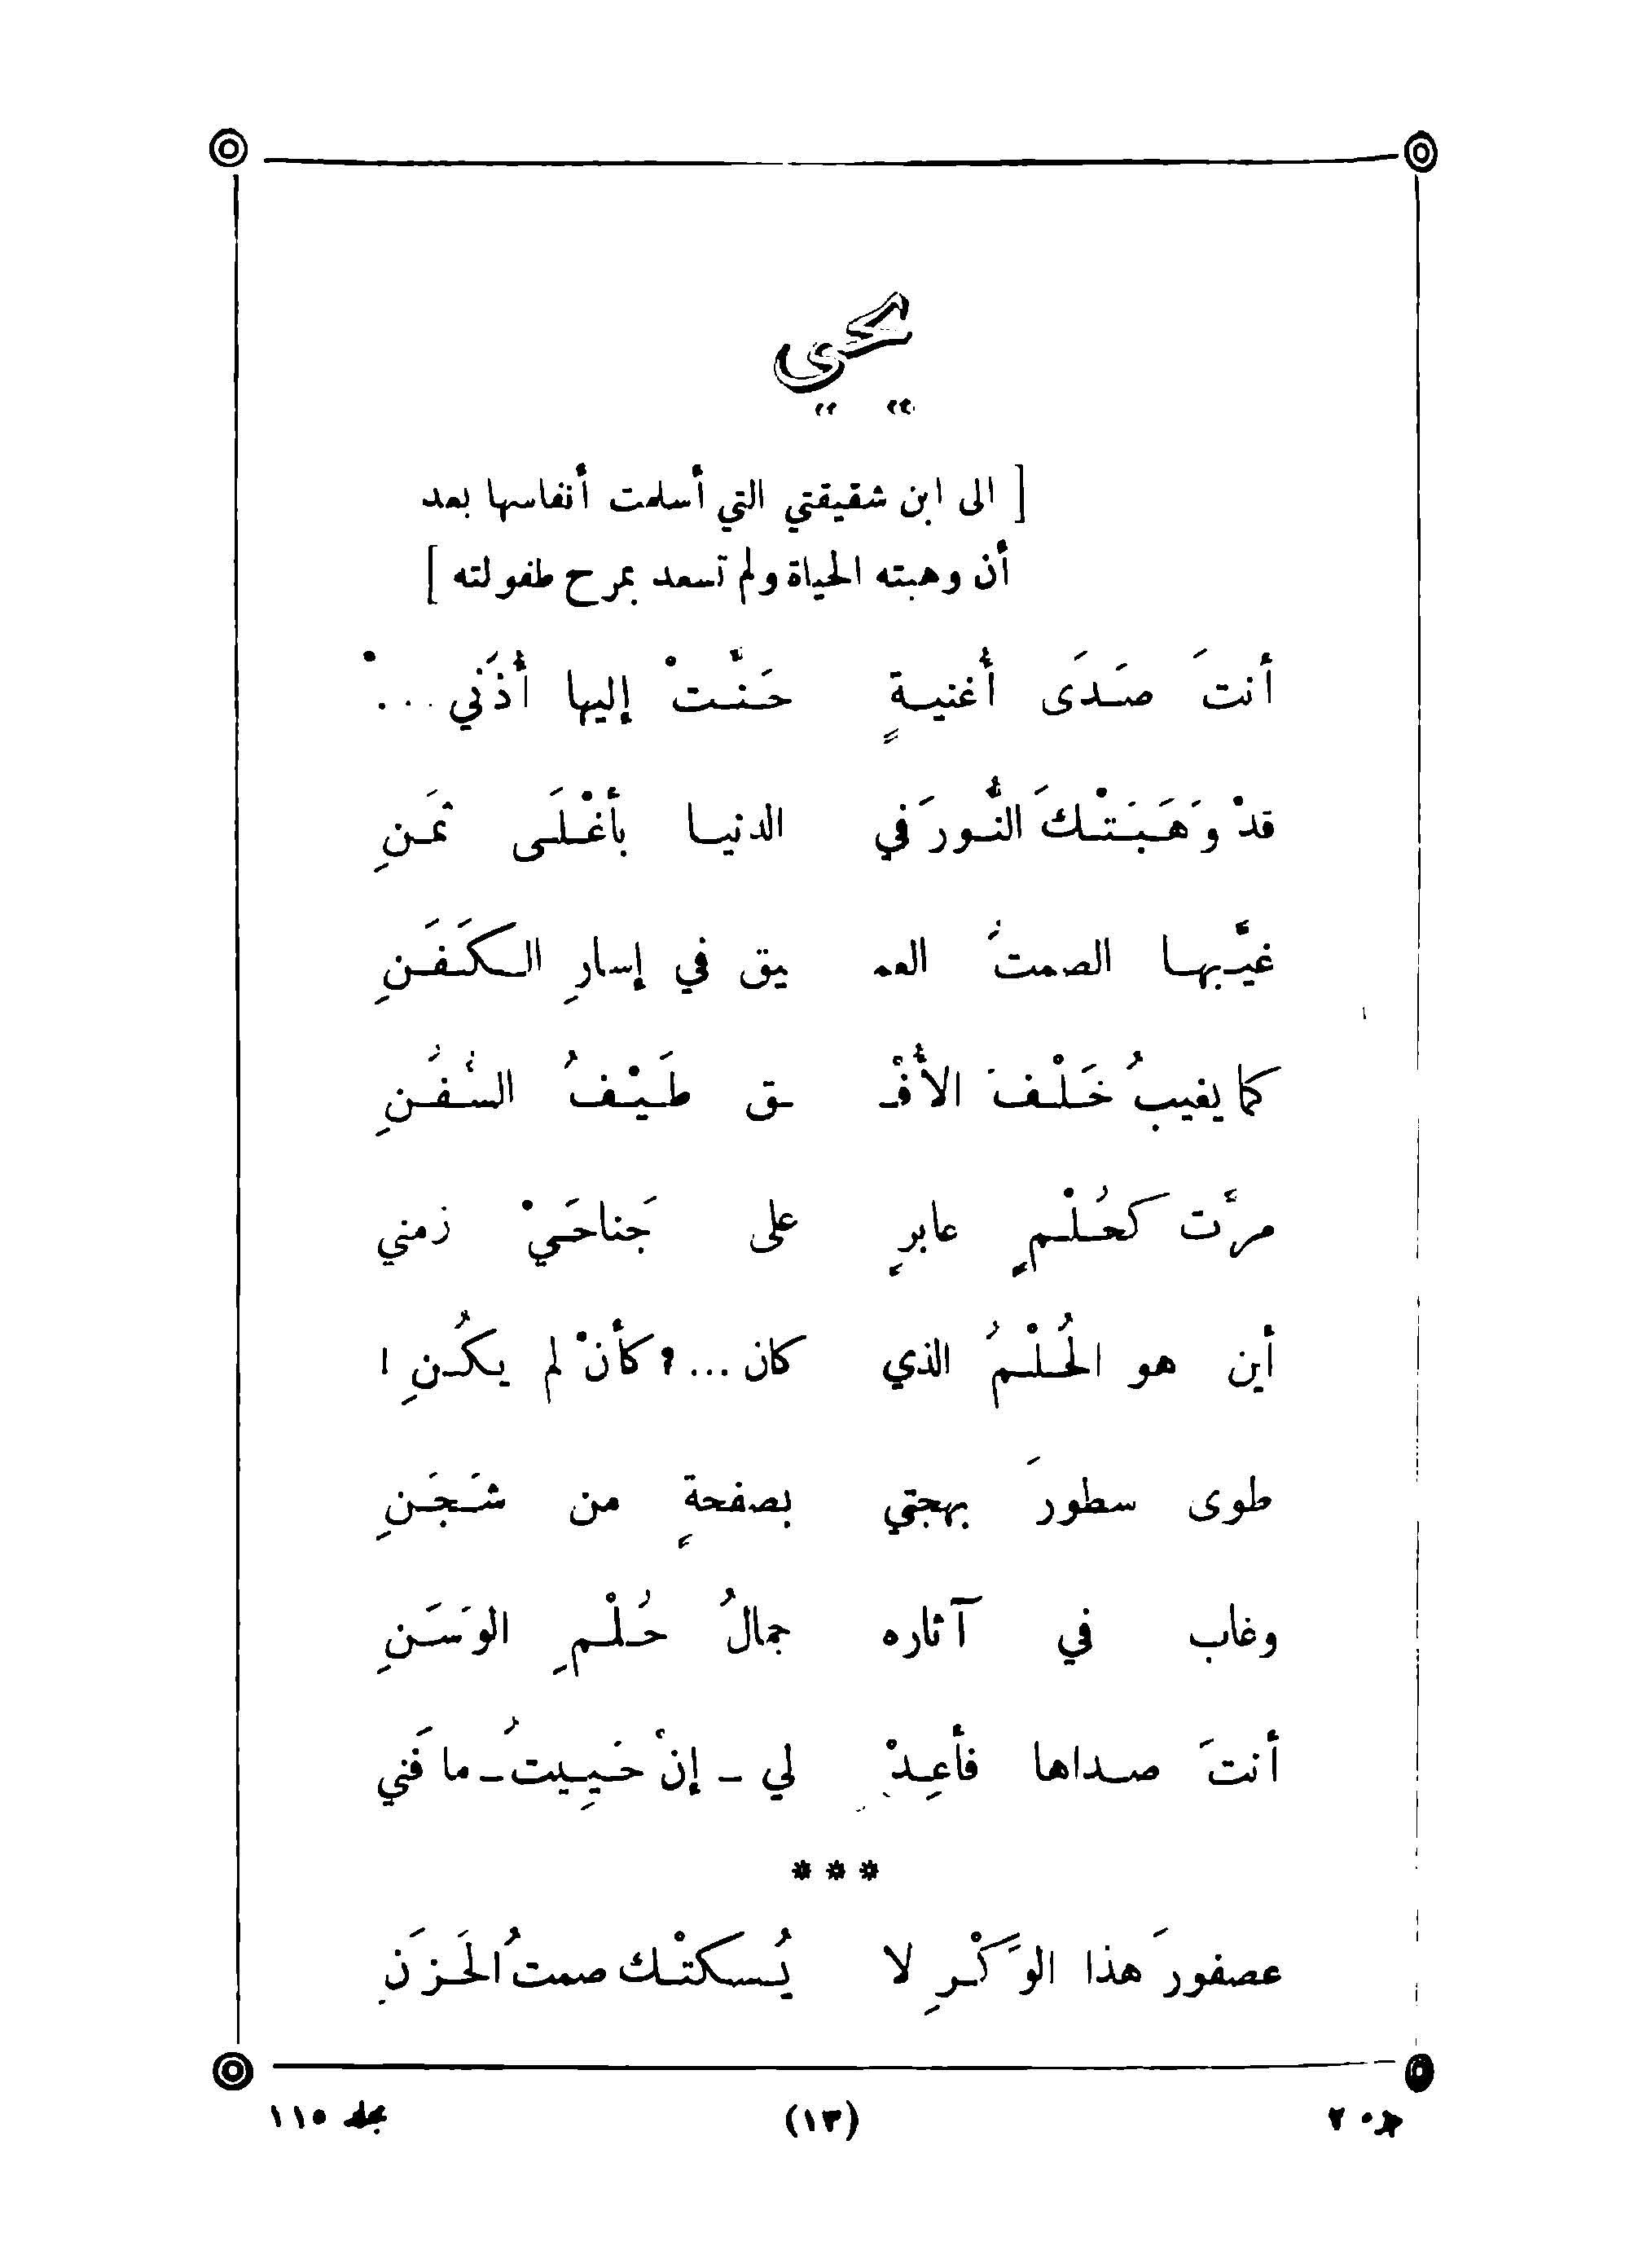 يحيي
[ الى ابن شقيقتي التي أسلمت أنفاسها بعد
أن وهبته الحياة ولم تسعد بمرح طفولته ]
أنتَ صَدَى أُغنيةٍ حَنَّتْ إليها أُذُني ...
قدْ وَهَبَتْكَ النُّورَ في الدنيا بأغْلَى ثَمَنِ
غيَّبها الصمتُ العمـ ـيق في إسارِ الكَفَنِ
كما يغيبُ خَلْفَ الأُفْـ ـق طَيْفُ السُّفُنِ
مرَّت كحُلْمٍ عابرٍ على جَناحَيْ زمني
أين هو الحُلْمُ الذي كان ...؟ كأنْ لم يكُنِ !
طوى سطورَ بهجتي بصفحةٍ من شَجَنِ
وغاب في آثاره جمالُ حُلْمِ الوَسَنِ
أنتَ صداها فأعِدْ لي ـ إنْ حَيِيتُ ـ ما فَني
***
عصفورَ هذا الوَكْرِ لا يُسكتْك صمتُ الحَزَنِ
جـ ٢ (١٣) مجلد ١١٥